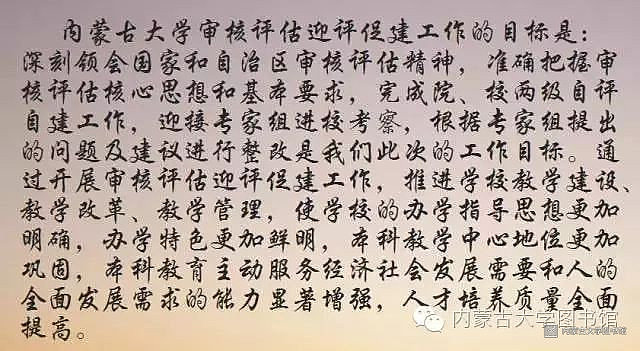 内蒙古大学审核评估迎评促建工作的目标是：
深刻领会国家和自治区审核评估精神，准确把握审
核评估核心思想和基本要求，完成院、校两级自评
自建工作，迎接专家组进校考察，根据专家组提出
的问题及建议进行整改是我们此次的工作目标。通
过开展审核评估迎评促建工作，推进学校教学建设、
教学改革、教学管理，使学校的办学指导思想更加
明确，办学特色更加鲜明，本科教学中心地位更加
巩固，本科教育主动服务经济社会发展需要和人的
全面发展需求的能力显著增强，人才培养质量全面
提高。
内蒙古大学图书馆
内蒙古文学图书馆